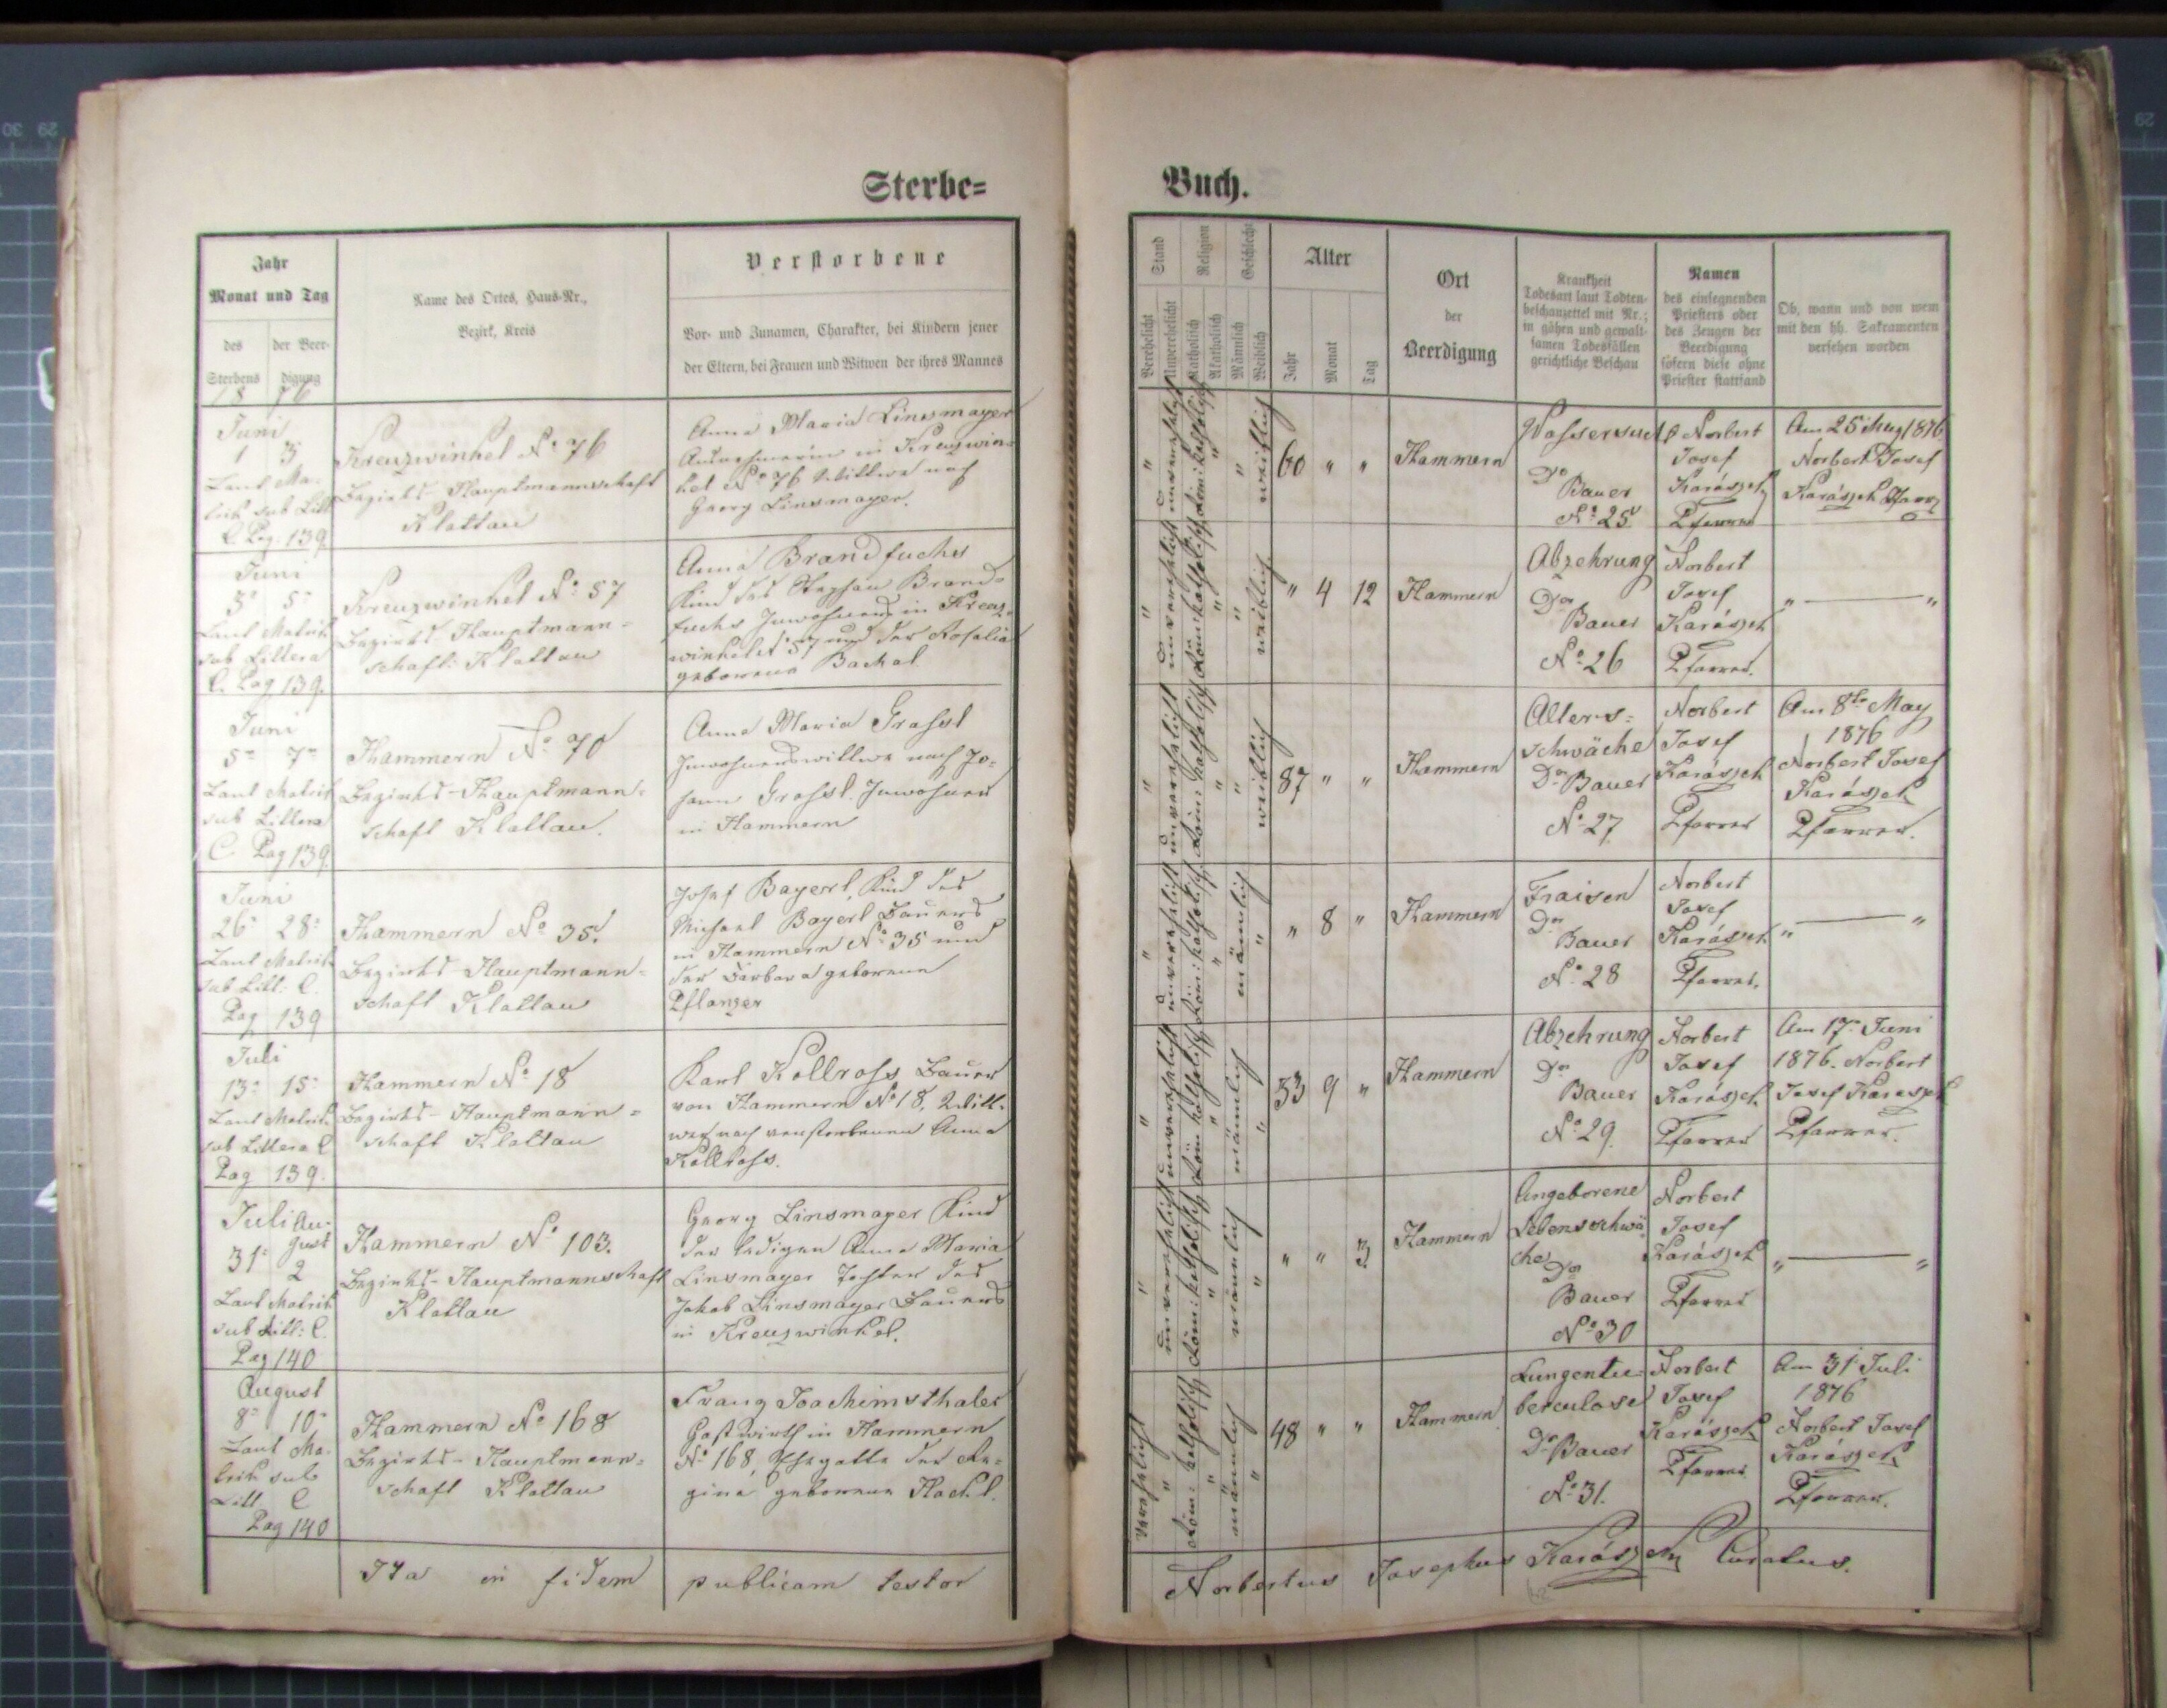 Sterbe=
Buch.
Jahr
Monat und Tag
des Sterbens
der Beer-
digung
Name des Ortes, Haus-Nr.,
Bezirk, Kreis
Verstorbene
Vor- und Zunamen, Charakter, bei Kindern jener
der Eltern, bei Frauen und Witwen der ihres Mannes
Stand
Verehelicht
Unverehelicht
Religion
Katholisch
Akatholisch
Geschlecht
Männlich
Weiblich
Alter
Jahr
Monat
Tag
Ort
der
Beerdigung
Krankheit
Todesart laut Todten-
beschauzettel mit Nr.;
in gähen und gewalt-
samen Todesfällen
gerichtliche Beschau
Namen
des einsegnenden
Priesters oder
des Zeugen der
Beerdigung
sofern diese ohne
Priester stattfand
Ob, wann und von wem
mit den hh. Sakramenten
versehen worden
1876
Juni
1 3
Laut Ma-
trik sub Litt
C Pag. 139.
Kreuzwinkel No 76
Bezirks-Hauptmannschaft
Klattau
Anna Maria Linsmayer
Ausnehmerin in Kreuzwin-
kel No 76 Wittwe nach
Georg Linsmayer.
" unverehelicht
Röm: katholisch "
" weiblich
60 " "
Hammern
Wassersucht
Dr
Bauer
No 25
P Norbert
Josef
Karászek
Pfarrer
Am 25 May 1876
Norbert Josef
Karászek Pfarr
Juni
3 5
Laut Matrik
sub Littera
C. Pag 139.
Kreuzwinkel No 57
Bezirks Hauptmann=
schaft: Klattau
Anna Brandfuchs
Kind des Stephan Brand=
fuchs Inwohners in Kreuz-
winkel 57 und der Rosalia
geborene Backal
" unverehelicht
Röm: katholisch "
" weiblich
" 4 12
Hammern
Abzehrung
Dr
Bauer
No 26
Norbert
Josef
Karászek
Pfarrer.
" — "
Juni
5 7
Laut Matrik
sub Littera
C. Pag 139.
Hammern No 70
Bezirks-Hauptmann=
schaft Klattau.
Anna Maria Grassl
Inwohnerswittwe nach Jo=
hann Grassl. Inwohner
in Hammern
" unverehelicht
Röm: katholisch "
" weiblich
87 " "
Hammern
Alters=
schwäche
Dr Bauer
No 27
Norbert
Josef
Karászek
Pfarrer
Am 8ten May
1876
Norbert Josef
Karászek
Pfarrer.
Juni
26 28
Laut Matrik
sub Litt: C.
Pag 139
Hammern No 35.
Bezirks-Hauptmann=
schaft Klattau
Josef Bayerl, Kind des
Michael Bayerl Bauers
in Hammern No 35 und
der Barbara geborene
Pflanzer
" unverehelicht
Röm: katholisch "
männlich "
" 8 "
Hammern
Fraisen
Dr
Bauer
No 28
Norbert
Josef
Karászek
Pfarrer.
" — "
Juli
13 15
Laut Matrik
sub Littera C
Pag 139.
Hammern No 18
Bezirks-Hauptmann=
schaft Klattau
Karl Kollross Bauer
von Hammern No 18, Witt-
wer nach verstorbenen Anna
Kollross.
" unverehelicht
Röm katholisch "
männlich "
53 9 "
Hammern
Abzehrung
Dr
Bauer
No 29.
Norbert
Josef
Karászek
Pfarrer
Am 17 Juni
1876. Norbert
Josef Karaszek
Pfarrer.
Juli August
31 2
Laut Matrik
sub Litt: C.
Pag 140
Hammern No 103.
Bezirks-Hauptmannschaft
Klattau
Georg Linsmayer Kind
der ledigen Anna Maria
Linsmayer Tochter des
Jakob Linsmayer Bauers
in Kreuzwinkel.
" unverehelicht
Röm: katholisch "
männlich "
" " 3
Hammern
Angeborene
Lebensschwä
che
Dr
Bauer
No 30
Norbert
Josef
Karászek
Pfarrer
" — "
August
8 10
Laut Ma-
trik sub
Litt C
Pag 140
Hammern No 168
Bezirks-Hauptmann=
schaft Klattau
Franz Joachimsthaler
Gastwirth in Hammern
No 168, Ehegatte der Re-
gina geborene Hackl.
verehelicht "
Röm: katholisch "
männlich "
48 " "
Hammern
Lungentu-
berculose
Dr Bauer
No 31.
Norbert
Josef
Karászek
Pfarrer
Am 31 Juli
1876
Norbert Josef
Karászek
Pfarrer.
Ita in fidem publicam testor
Norbertus Josephus Karászek Curatus.